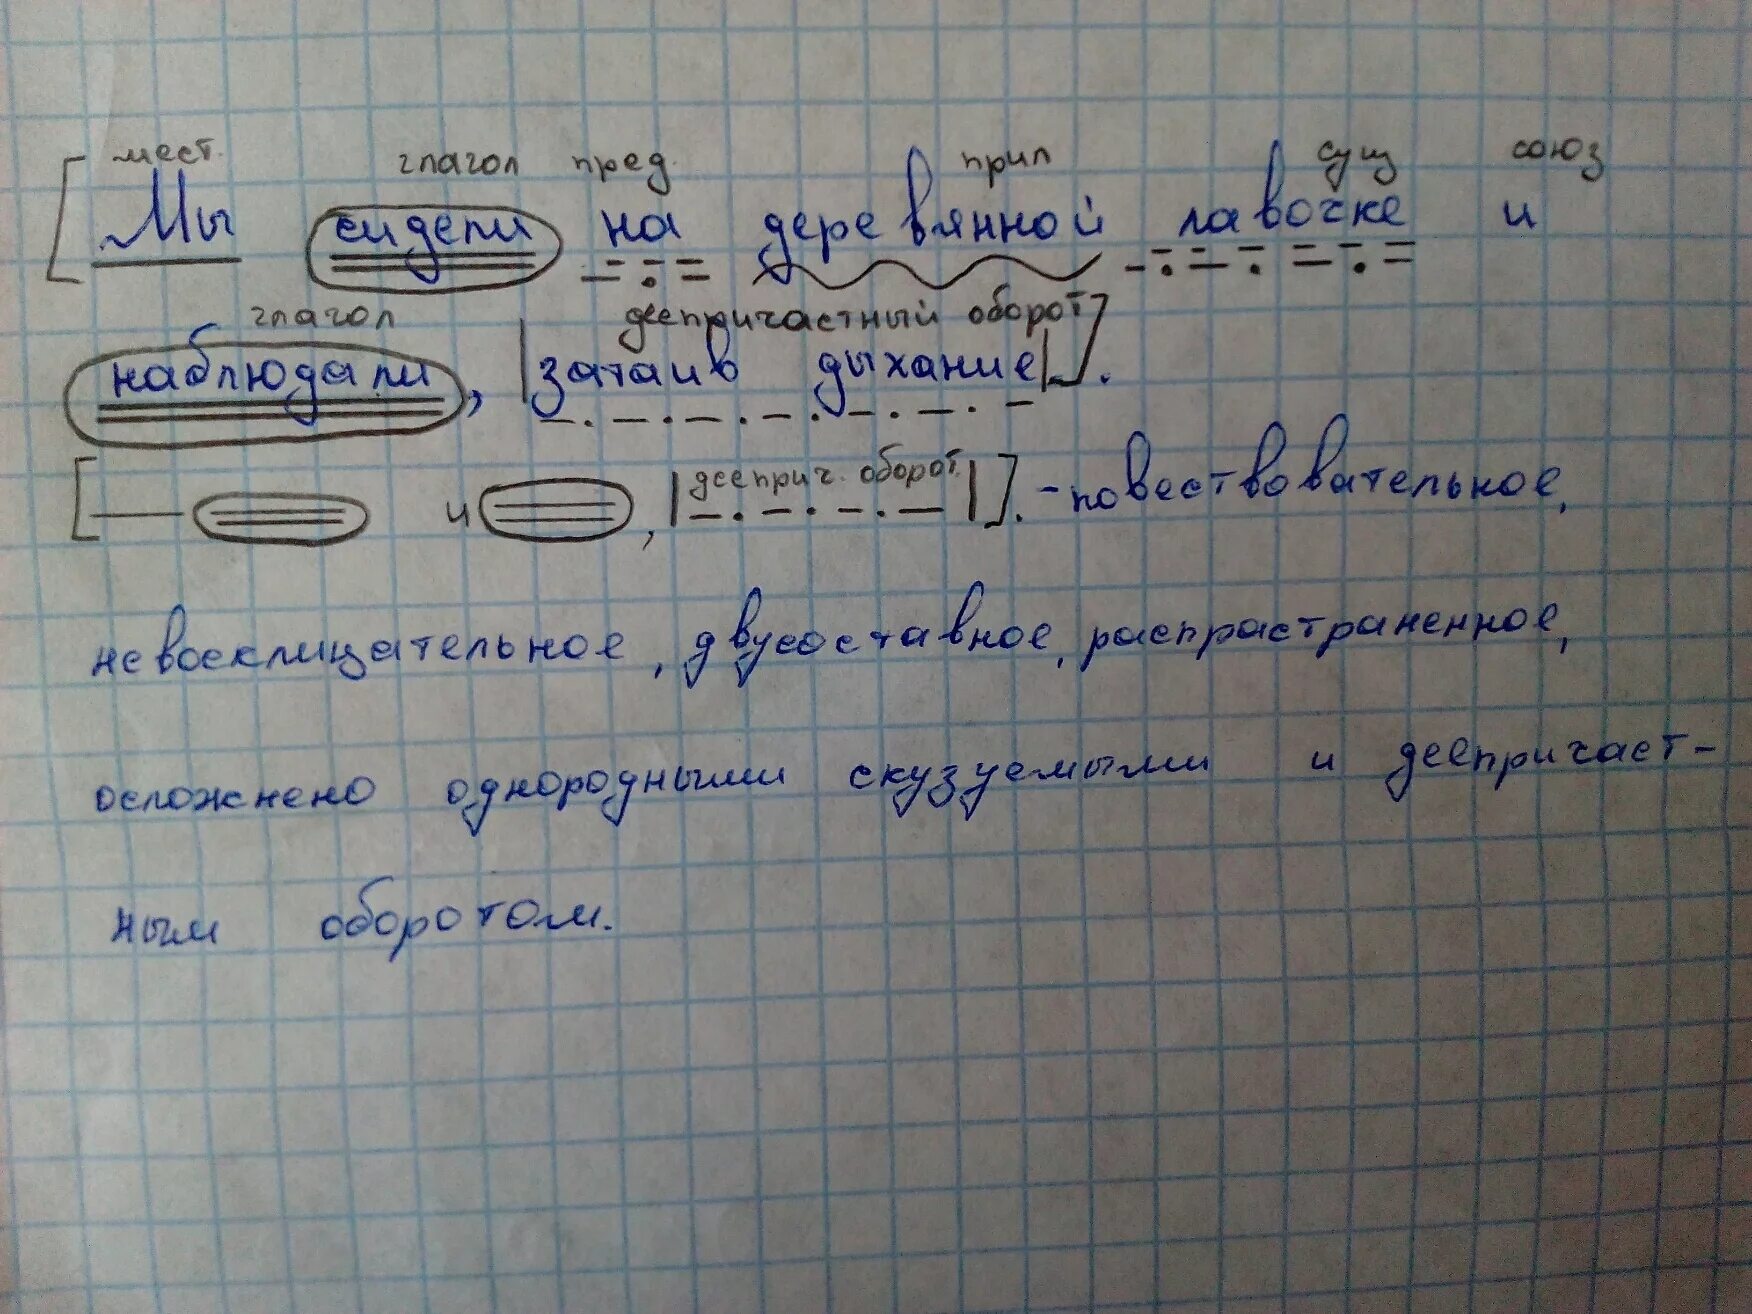 мест. глагол пред. прил сущ союз
[Мы сидели на деревянной лавочке и
глагол деепричастный оборот
наблюдали, |затаив дыхание|].
[ и , |дееприч. оборот|]. - повествовательное,
невосклицательное, двусоставное, распрастраненное,
осложнено однородными скузуемыми и деепричаст-
ным оборотом.